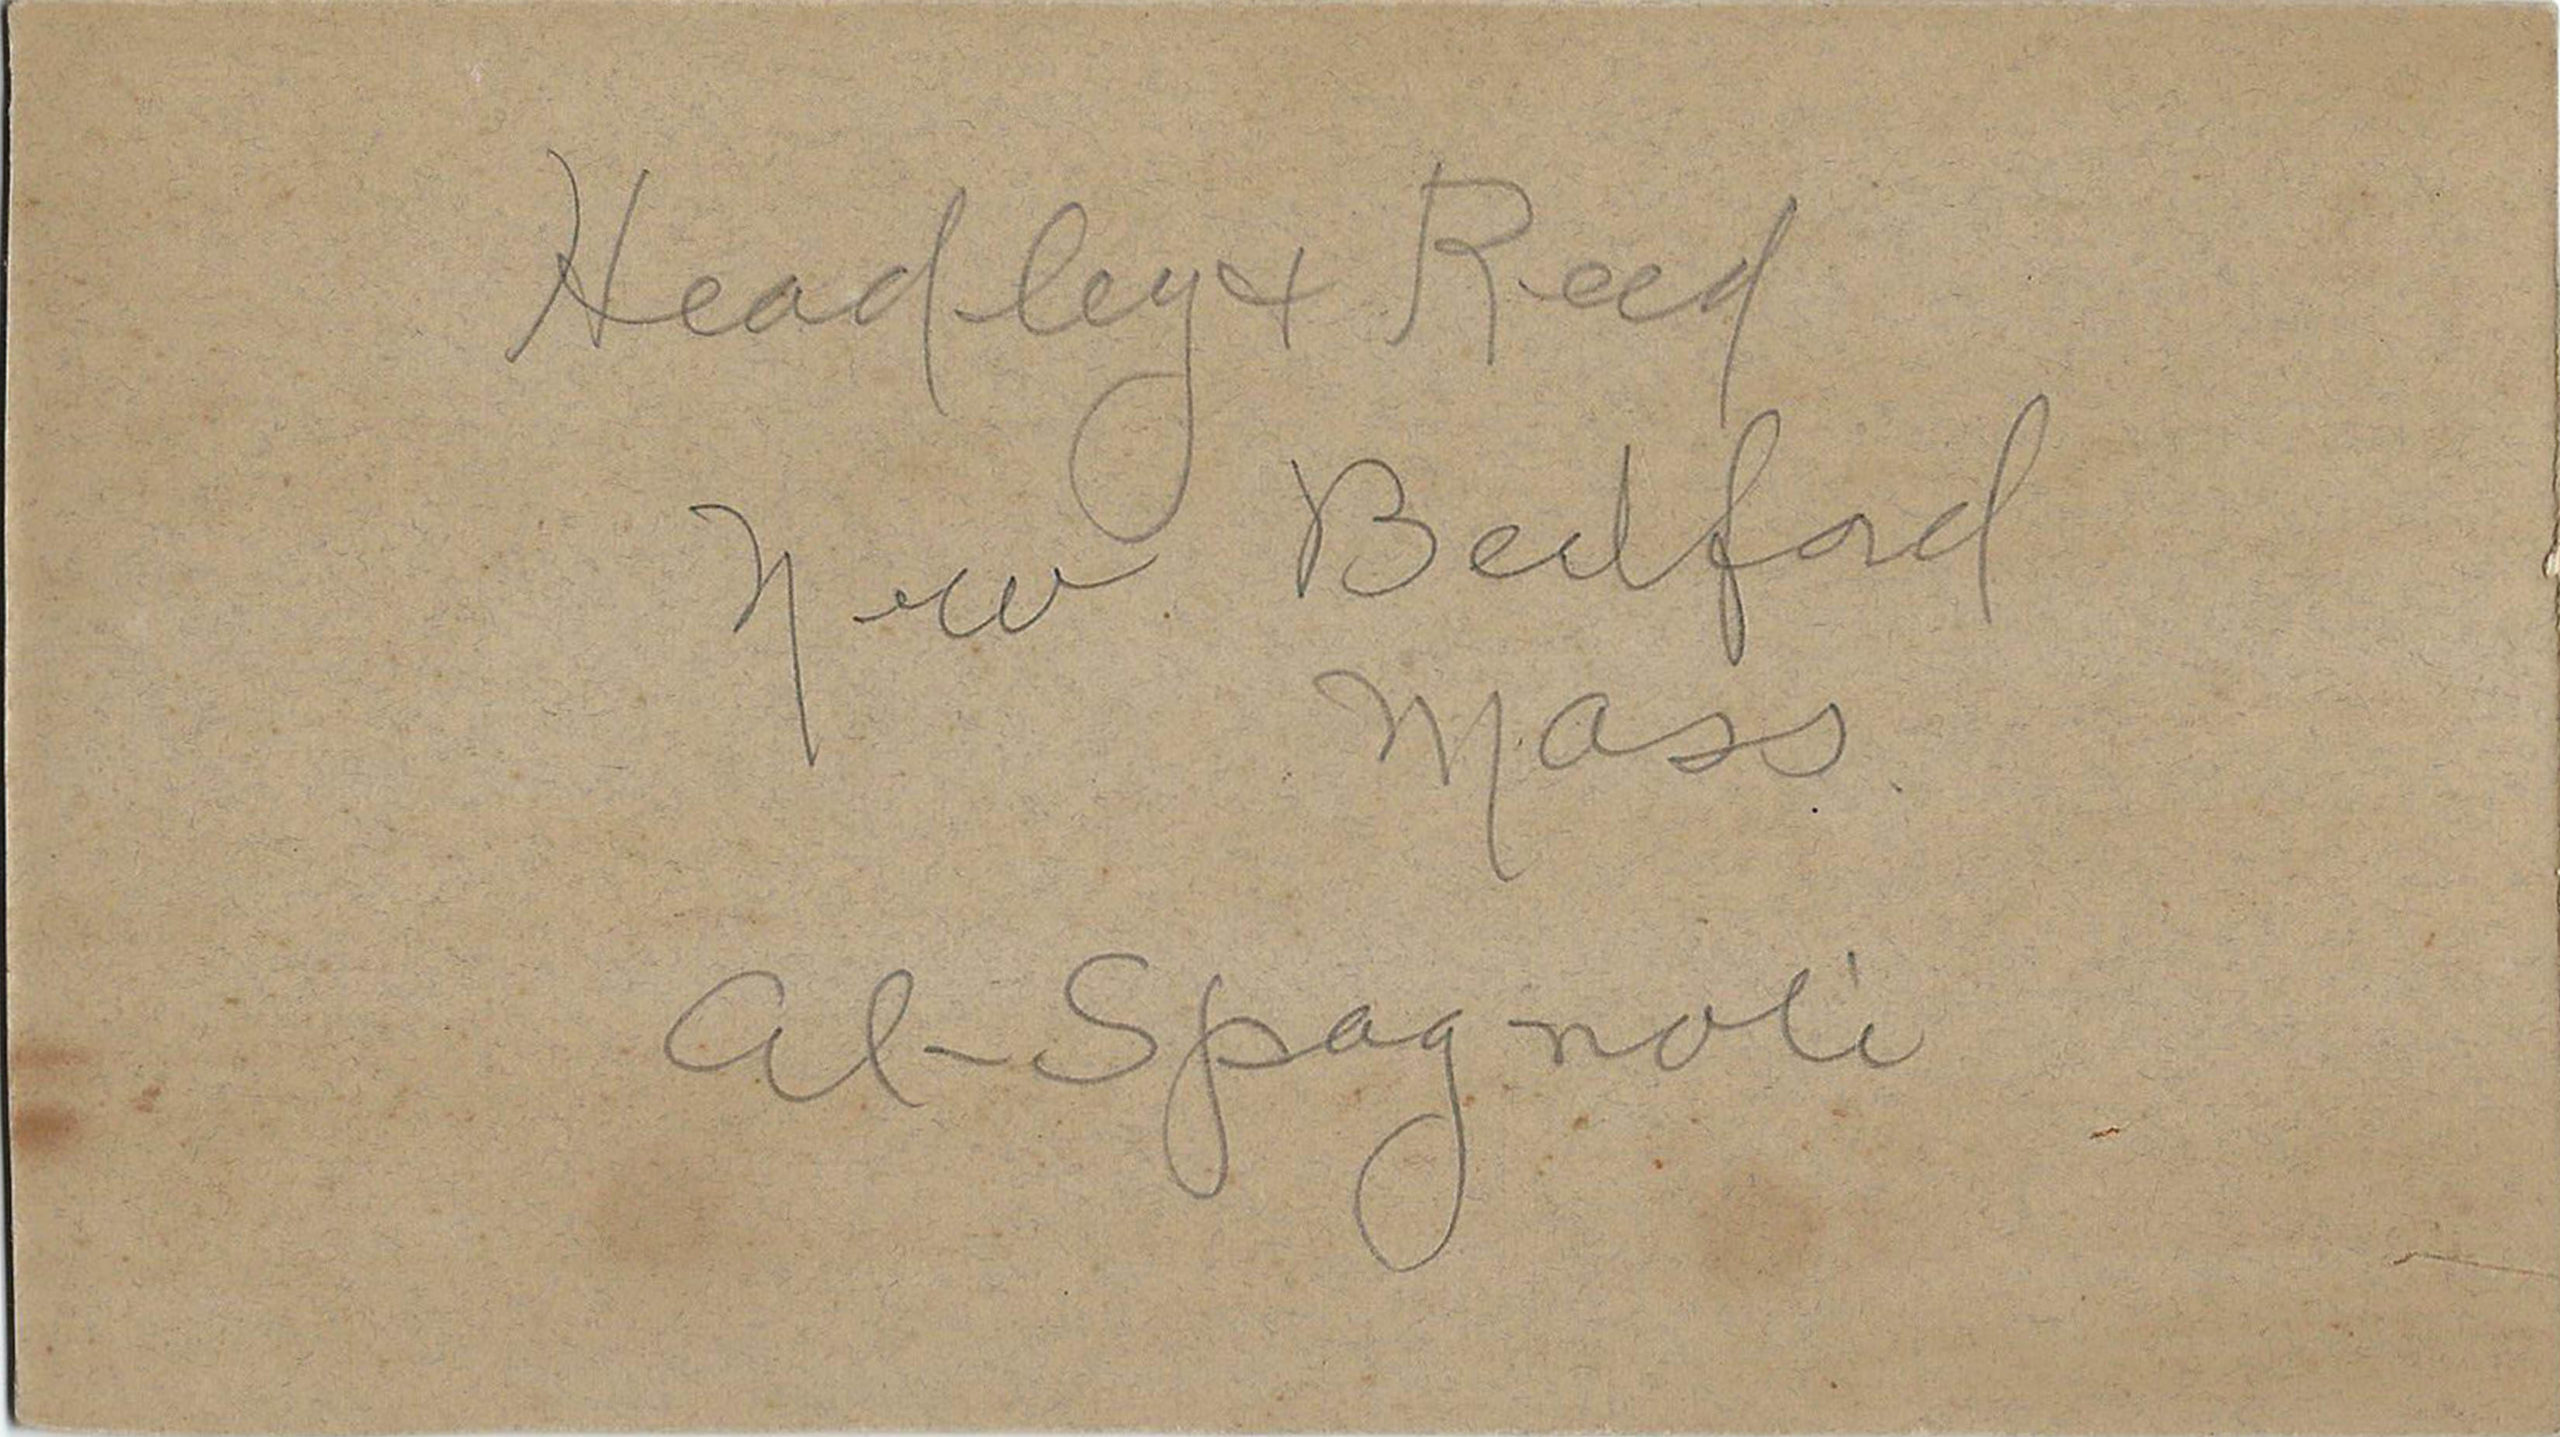 Headley + Reed
New Bedford
Mass.
Al-Spagnoli